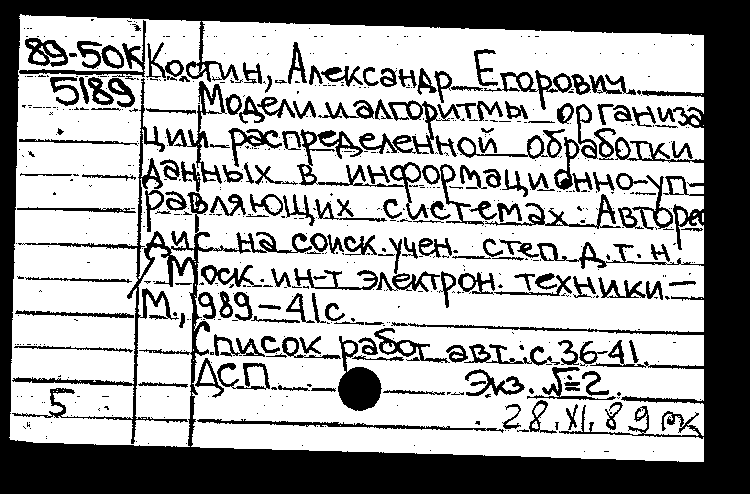 89-50К Костин, Александр Егорович
5189 Модели и алгоритмы организа
ции распределенной обработки
данных в информационно-уп-
равляющих системах: Авторе
дис. на соиск. учен. степ. д.т.н.
/ Моск. ин-т электрон. техники—
М., 1989.—41с.
Список работ авт.: с. 36-41.
ДСП Экз. №2.
5 28.XI.89